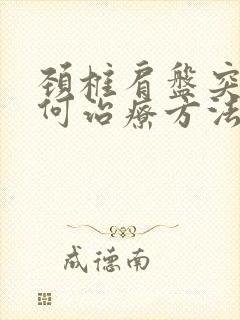 颈椎肩盤突
何治療方法
成德南